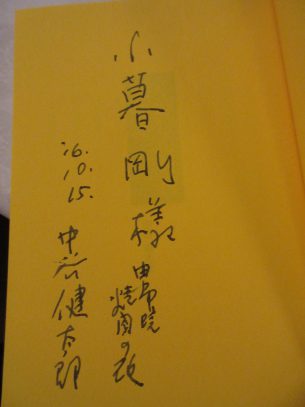 小暮剛様
由布院
焼肉の夜
'16.
10.
15.
中谷健太郎